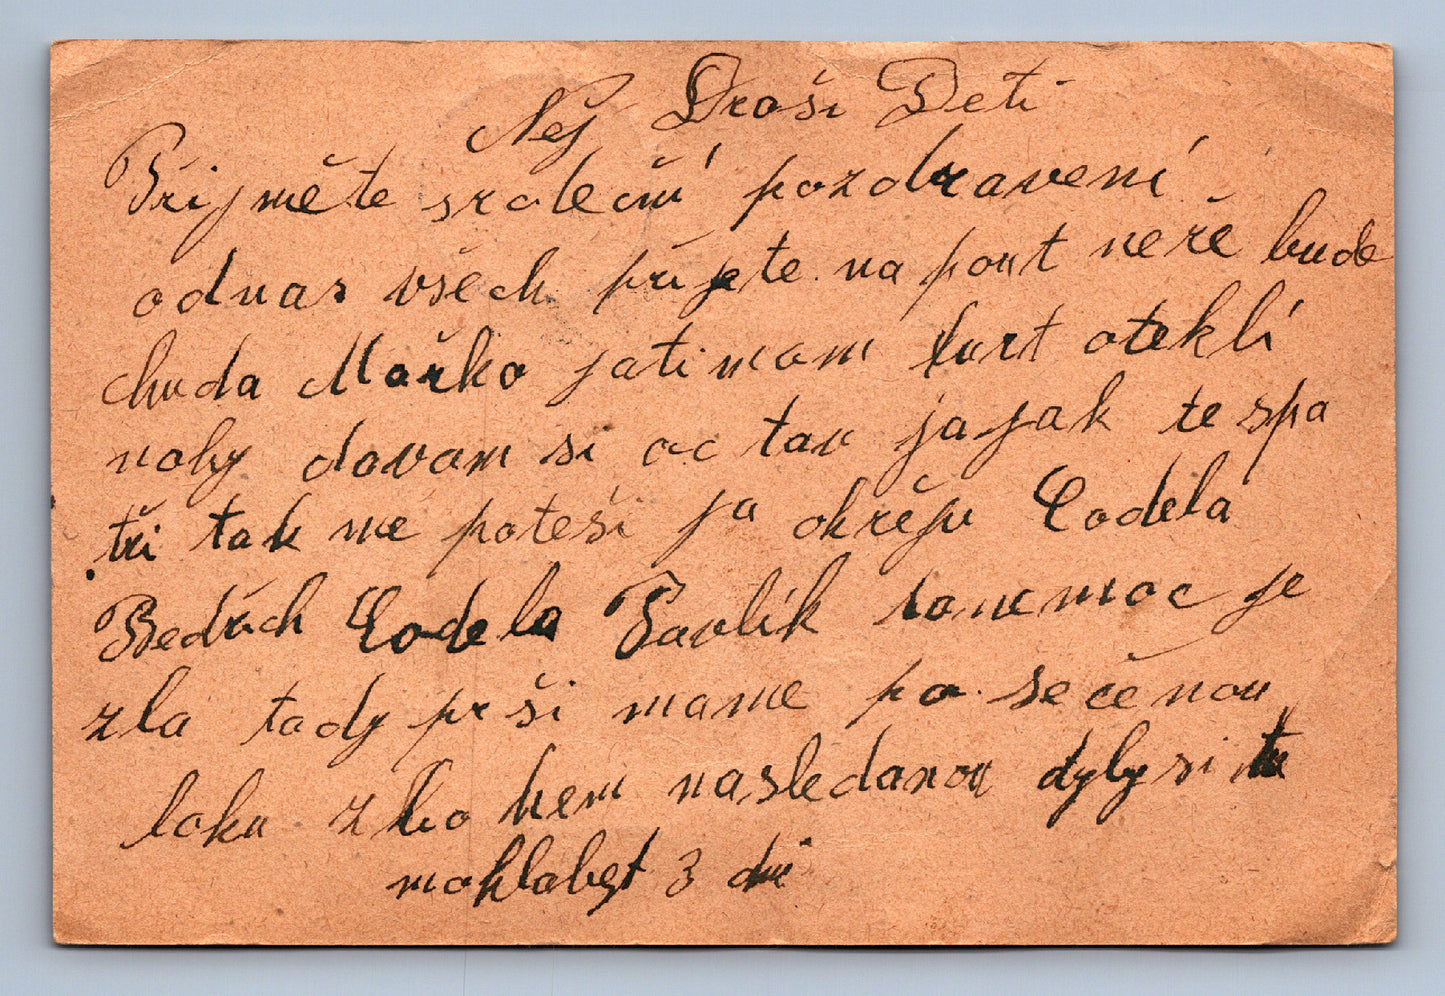 Nej Droší Deti
Přijměte srdeční pozdravení
odnas všech přijete na pout neře bude
chuda Mařko jati mam furt oteklí
nohy davam si oc tan jajak te spa
tři tak me poteši ja okřeju Lodela
Bedrich Lodela Pavlík tonemoc je
zla tady prši mame po sečenou
loku z ko nem nasledanou dyby si tu
mohla byt 3 dni